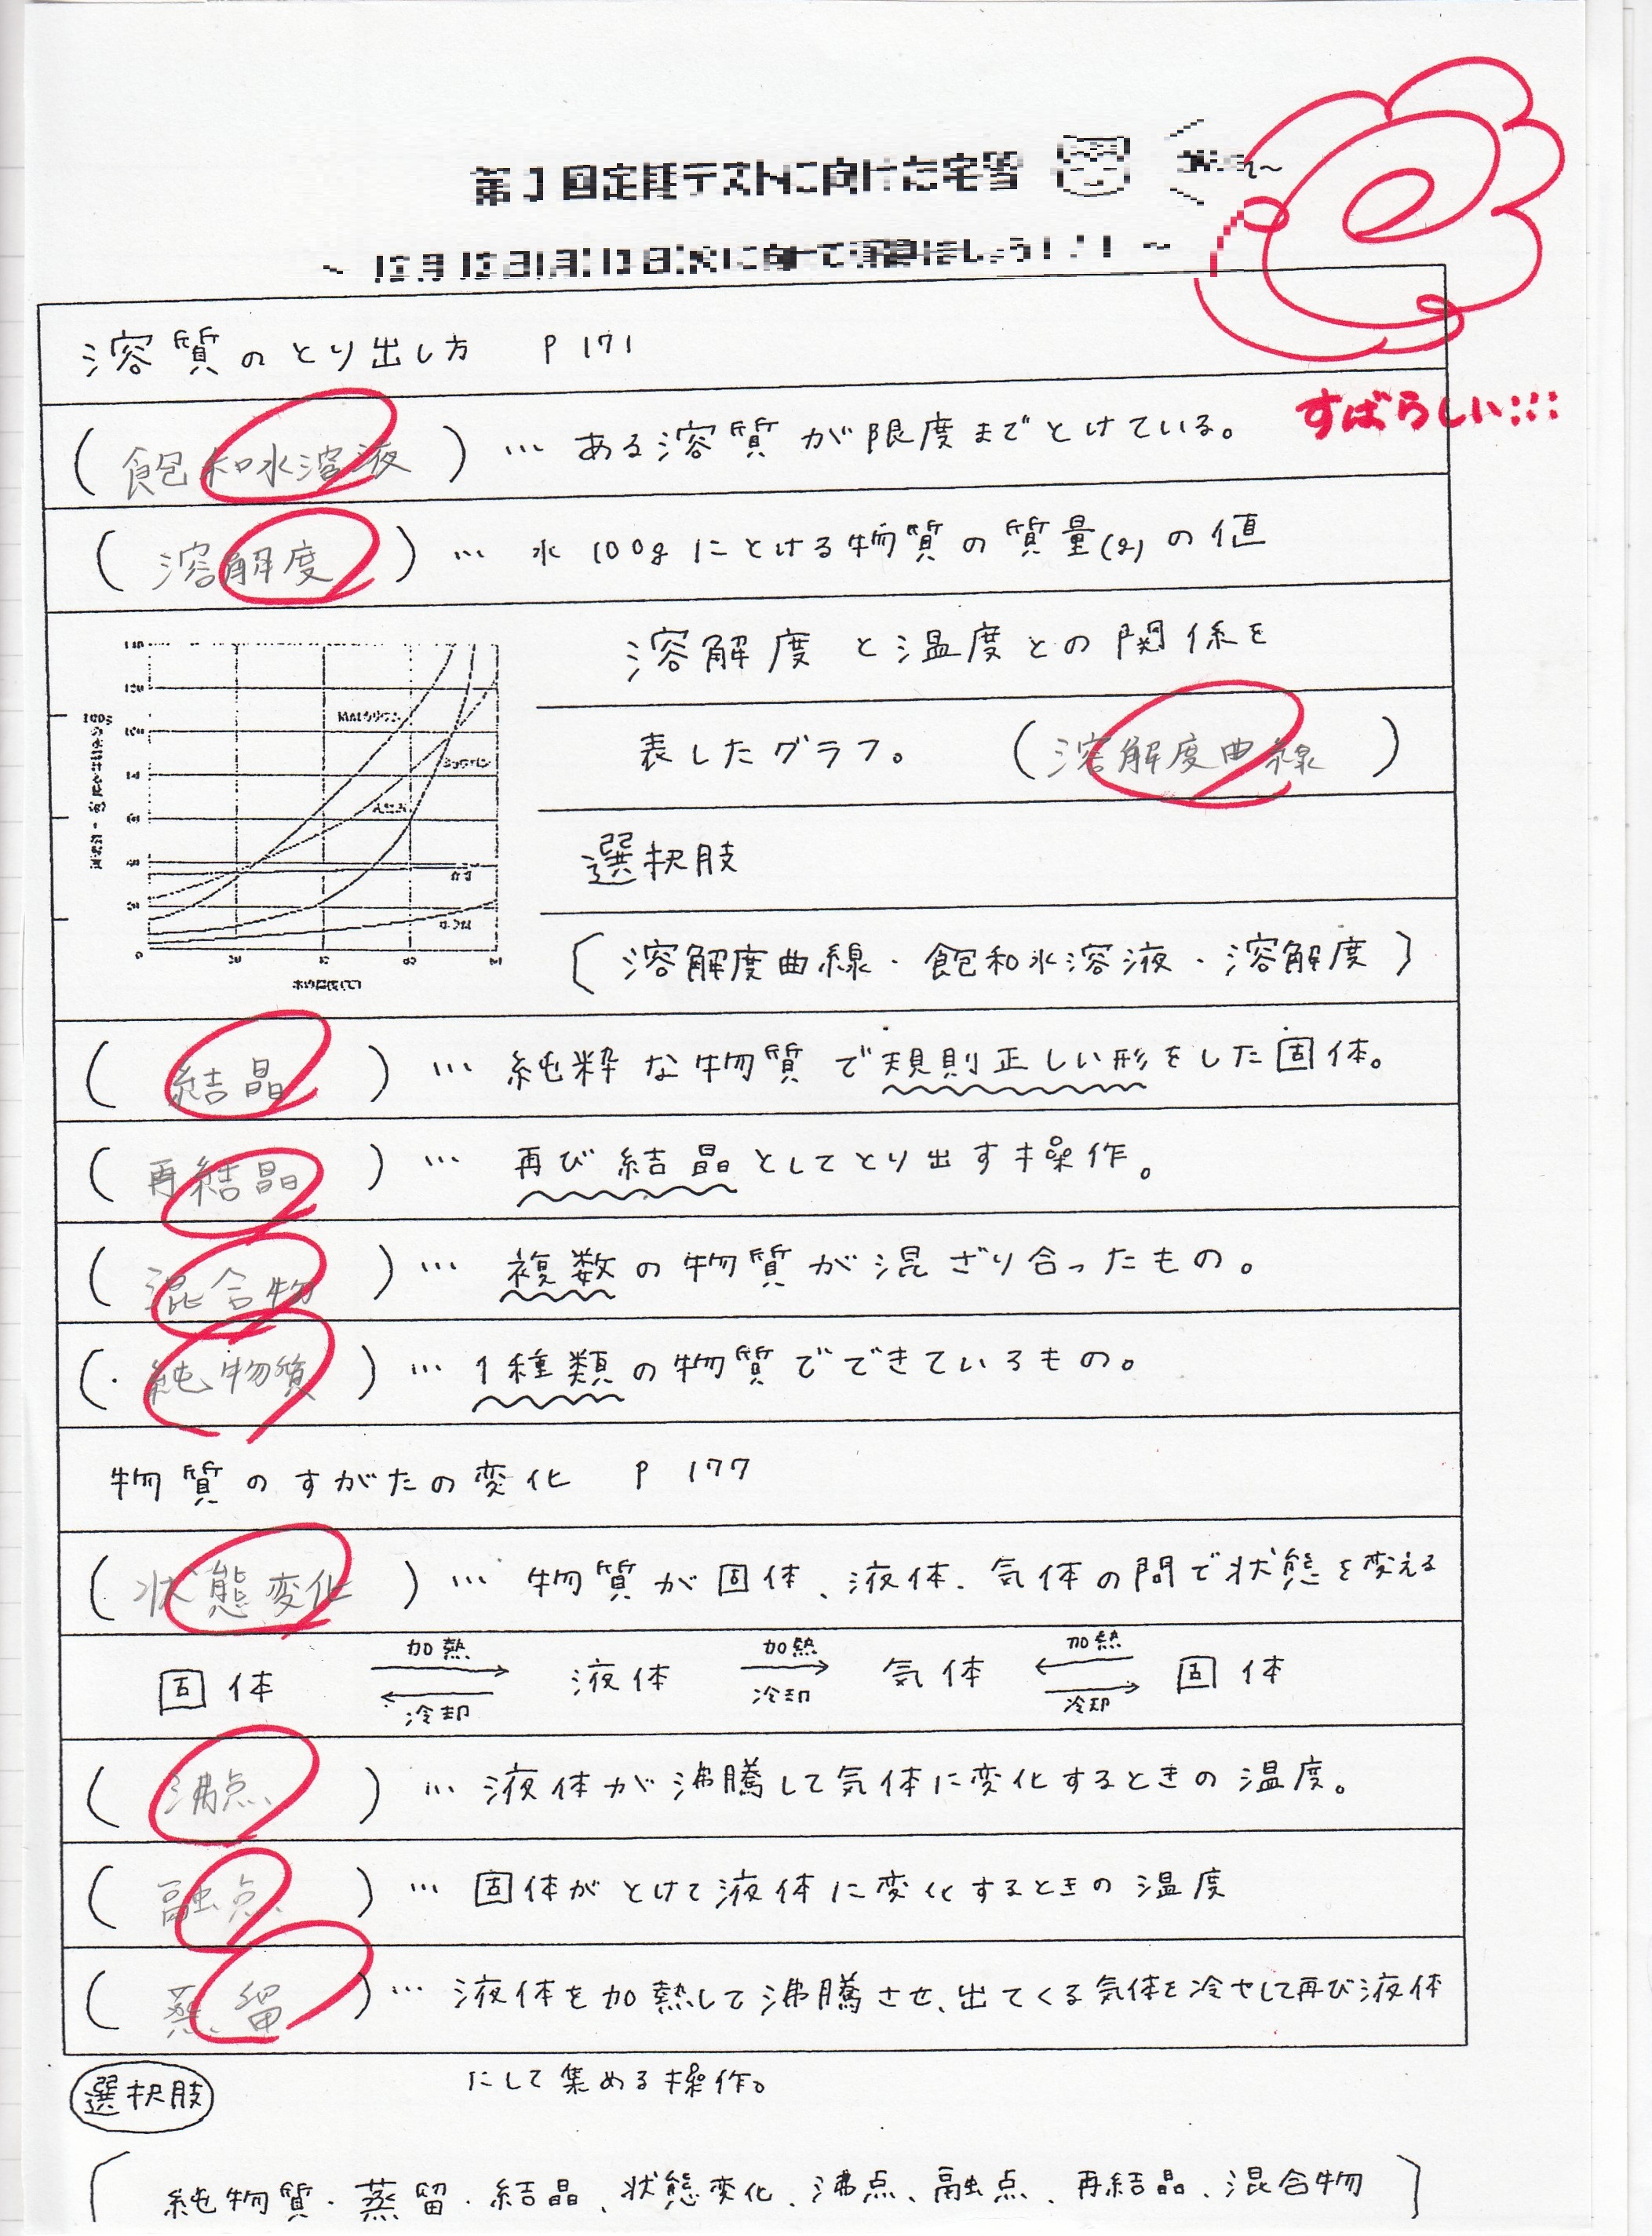 第3回定期テストに向けた宅習
すばらしい:::
溶質のとり出し方 P171
(飽和水溶液)… ある溶質が限度までとけている。
(溶解度)… 水100gにとける物質の質量(g)の値
溶解度と温度との関係を
表したグラフ。(溶解度曲線)
選択肢
〔溶解度曲線・飽和水溶液・溶解度〕
(結晶)… 純粋な物質で規則正しい形をした固体。
(再結晶)… 再び結晶としてとり出す操作。
(混合物)… 複数の物質が混ざり合ったもの。
(純物質)… 1種類の物質でできているもの。
物質のすがたの変化 P177
(状態変化)… 物質が固体、液体、気体の間で状態を変える
加熱 加熱 加熱
固体 液体 気体 固体
冷却 冷却 冷却
(沸点)… 液体が沸騰して気体に変化するときの温度。
(融点)… 固体がとけて液体に変化するときの温度
(蒸留)… 液体を加熱して沸騰させ、出てくる気体を冷やして再び液体
にして集める操作。
選択肢
〔純物質・蒸留・結晶、状態変化、沸点、融点、再結晶、混合物〕